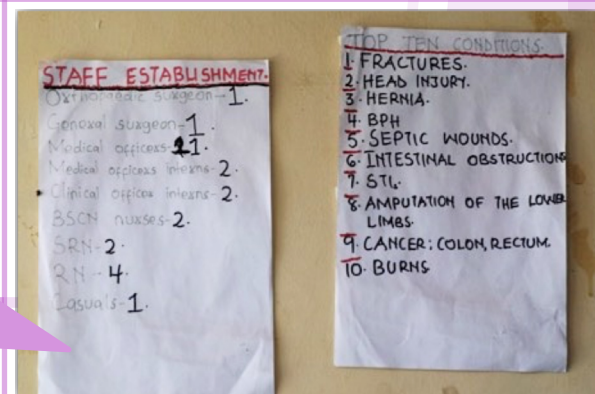 STAFF ESTABLISHMENT.
Orthopaedic surgeon-1.
General surgeon-1.
Medical officers-1.
Medical officers interns-2.
Clinical officer interns-2.
BSCN nurses-2.
SRN-2.
RN-4.
Casuals-1.
TOP TEN CONDITIONS.
1. FRACTURES.
2. HEAD INJURY.
3. HERNIA.
4. BPH
5. SEPTIC WOUNDS.
6. INTESTINAL OBSTRUCTION
7. STI.
8. AMPUTATION OF THE LOWER
LIMBS.
9. CANCER; COLON, RECTUM.
10. BURNS